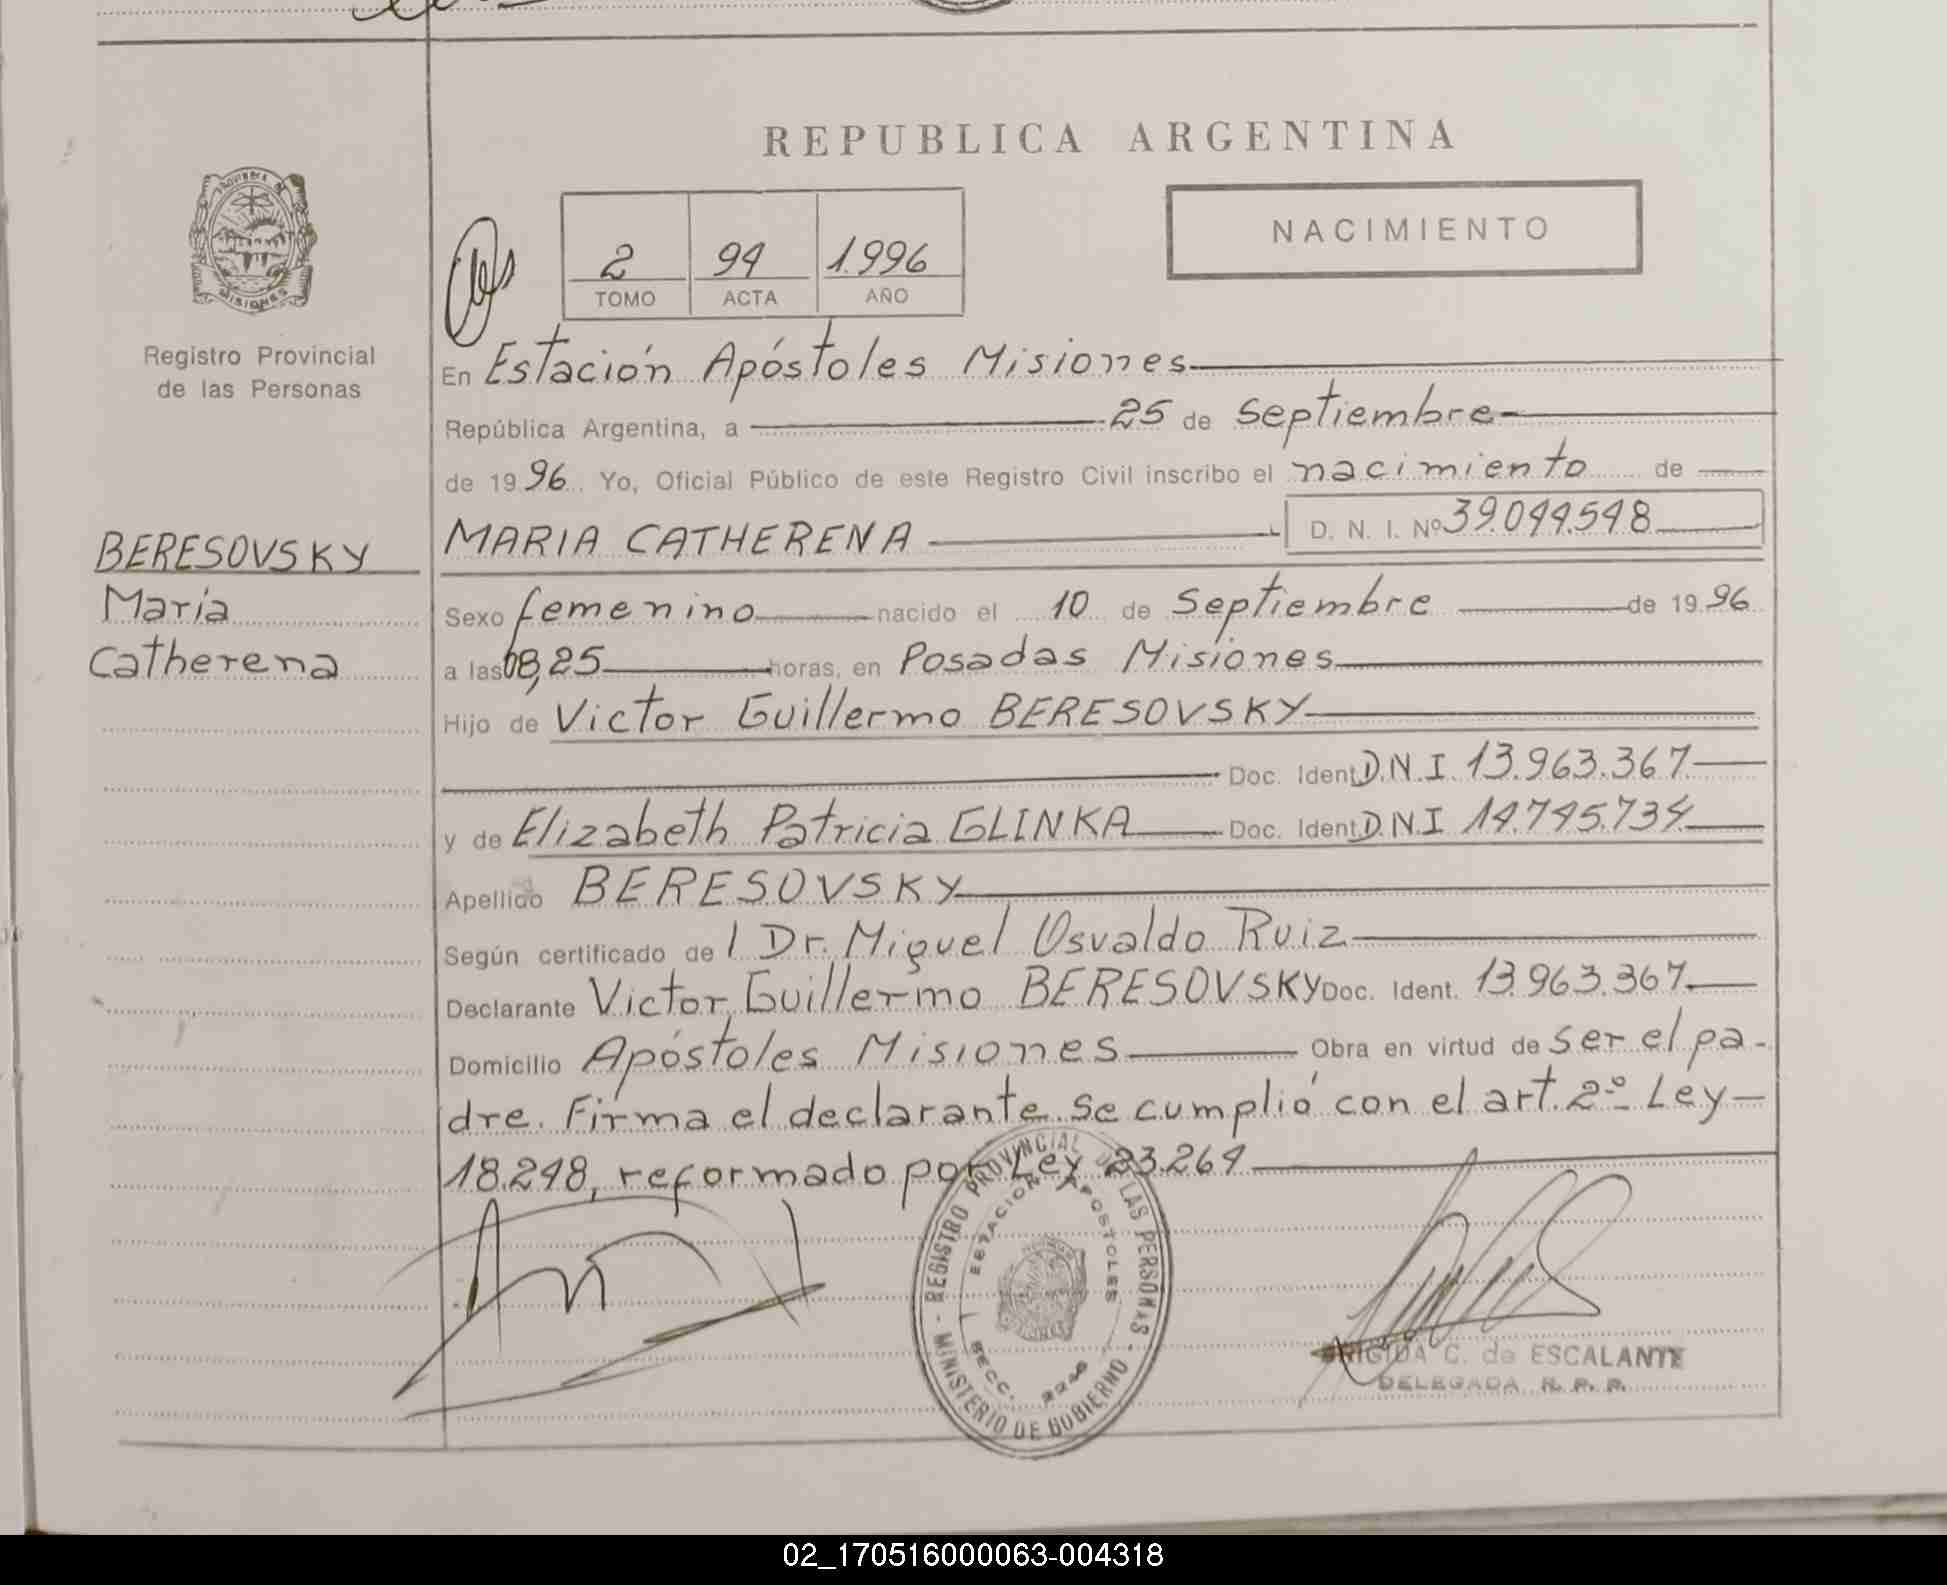 REPUBLICA ARGENTINA
NACIMIENTO
2 94 1996
TOMO ACTA AÑO
PROVINCIA DE MISIONES
Registro Provincial
de las Personas
BERESOVSKY
María
Catherena
En Estación Apóstoles Misiones
República Argentina, a 25 de Septiembre
de 1996. Yo, Oficial Público de este Registro Civil inscribo el nacimiento de
MARIA CATHERENA D. N. I. Nº 39.044.548
Sexo femenino nacido el 10 de Septiembre de 1996
a las 08,25 horas, en Posadas Misiones
Hijo de Victor Guillermo BERESOVSKY
Doc. Ident. D.N.I. 13.963.367
y de Elizabeth Patricia GLINKA Doc. Ident. D.N.I 14.745.734
Apellido BERESOVSKY
Según certificado de l Dr. Miguel Osvaldo Ruiz
Declarante Victor Guillermo BERESOVSKY Doc. Ident. 13.963.367
Domicilio Apóstoles Misiones Obra en virtud de ser el pa-
dre. Firma el declarante. Se cumplió con el art. 2º Ley
18.248, reformado por Ley 23.264
REGISTRO PROVINCIAL DE LAS PERSONAS - MINISTERIO DE GOBIERNO -
ESTACION APOSTOLES
SECC.
BRIGIDA C. de ESCALANTE
DELEGADA R. P. P.
02_170516000063-004318